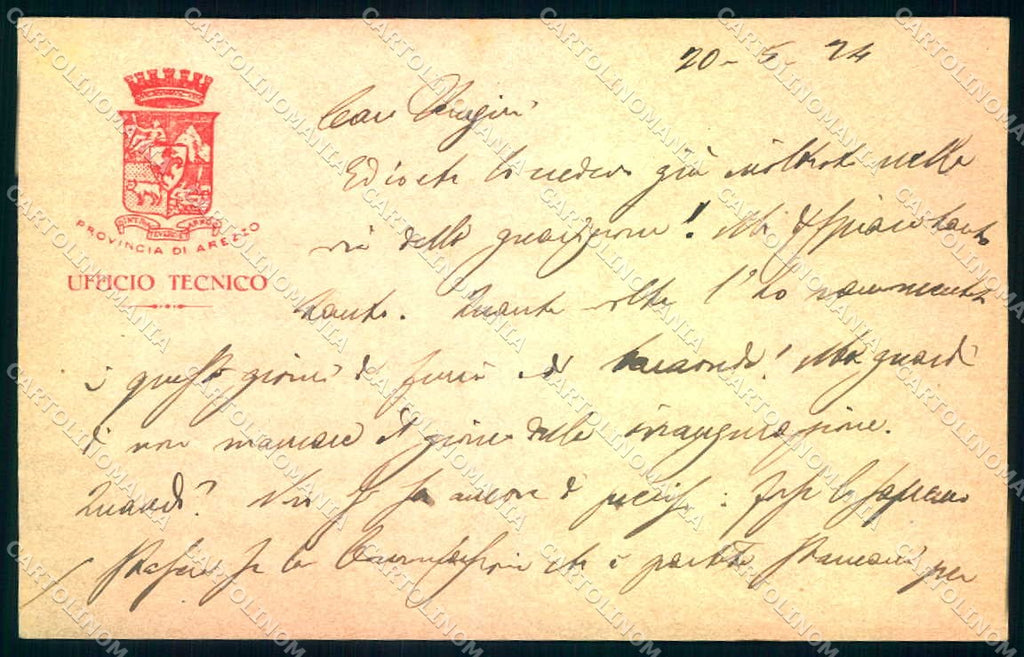 20-5-24
PROVINCIA DI AREZZO
UFFICIO TECNICO
Caro
Ed io che lo vedevo già inoltrato nella
via della guarigione! Mi dispiace tanto
tanto. Quante volte l'ho
in questi giorni di furia e di ! Ma guardi
di non mancare il giorno della inaugurazione.
Quando? Non si sa ancora di preciso: forse lo sapremo
stasera se la Commissione che è partita stamani per
CARTOLINOMANIA